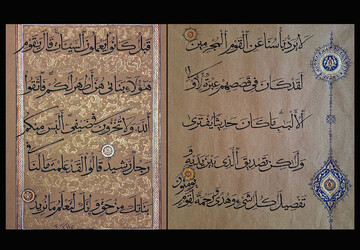 لا يرد بأسنا عن القوم المجرمين
لقد كان في قصصهم عبرة لاولي
الالبب ما كان حديثا يفترى
ولكن تصديق الذي بين يديه و
تفصيل كل شيء وهدى ورحمة لقوم يومنون
قبل كانوا يعملون السيئات قال يقوم
هؤلاء بناتي هن أطهر لكم فاتقوا
الله ولا تخزون في ضيفي أليس منكم
رجل رشيد قالوا لقد علمت ما لنا في
بناتك من حق وإنك لتعلم ما نريد